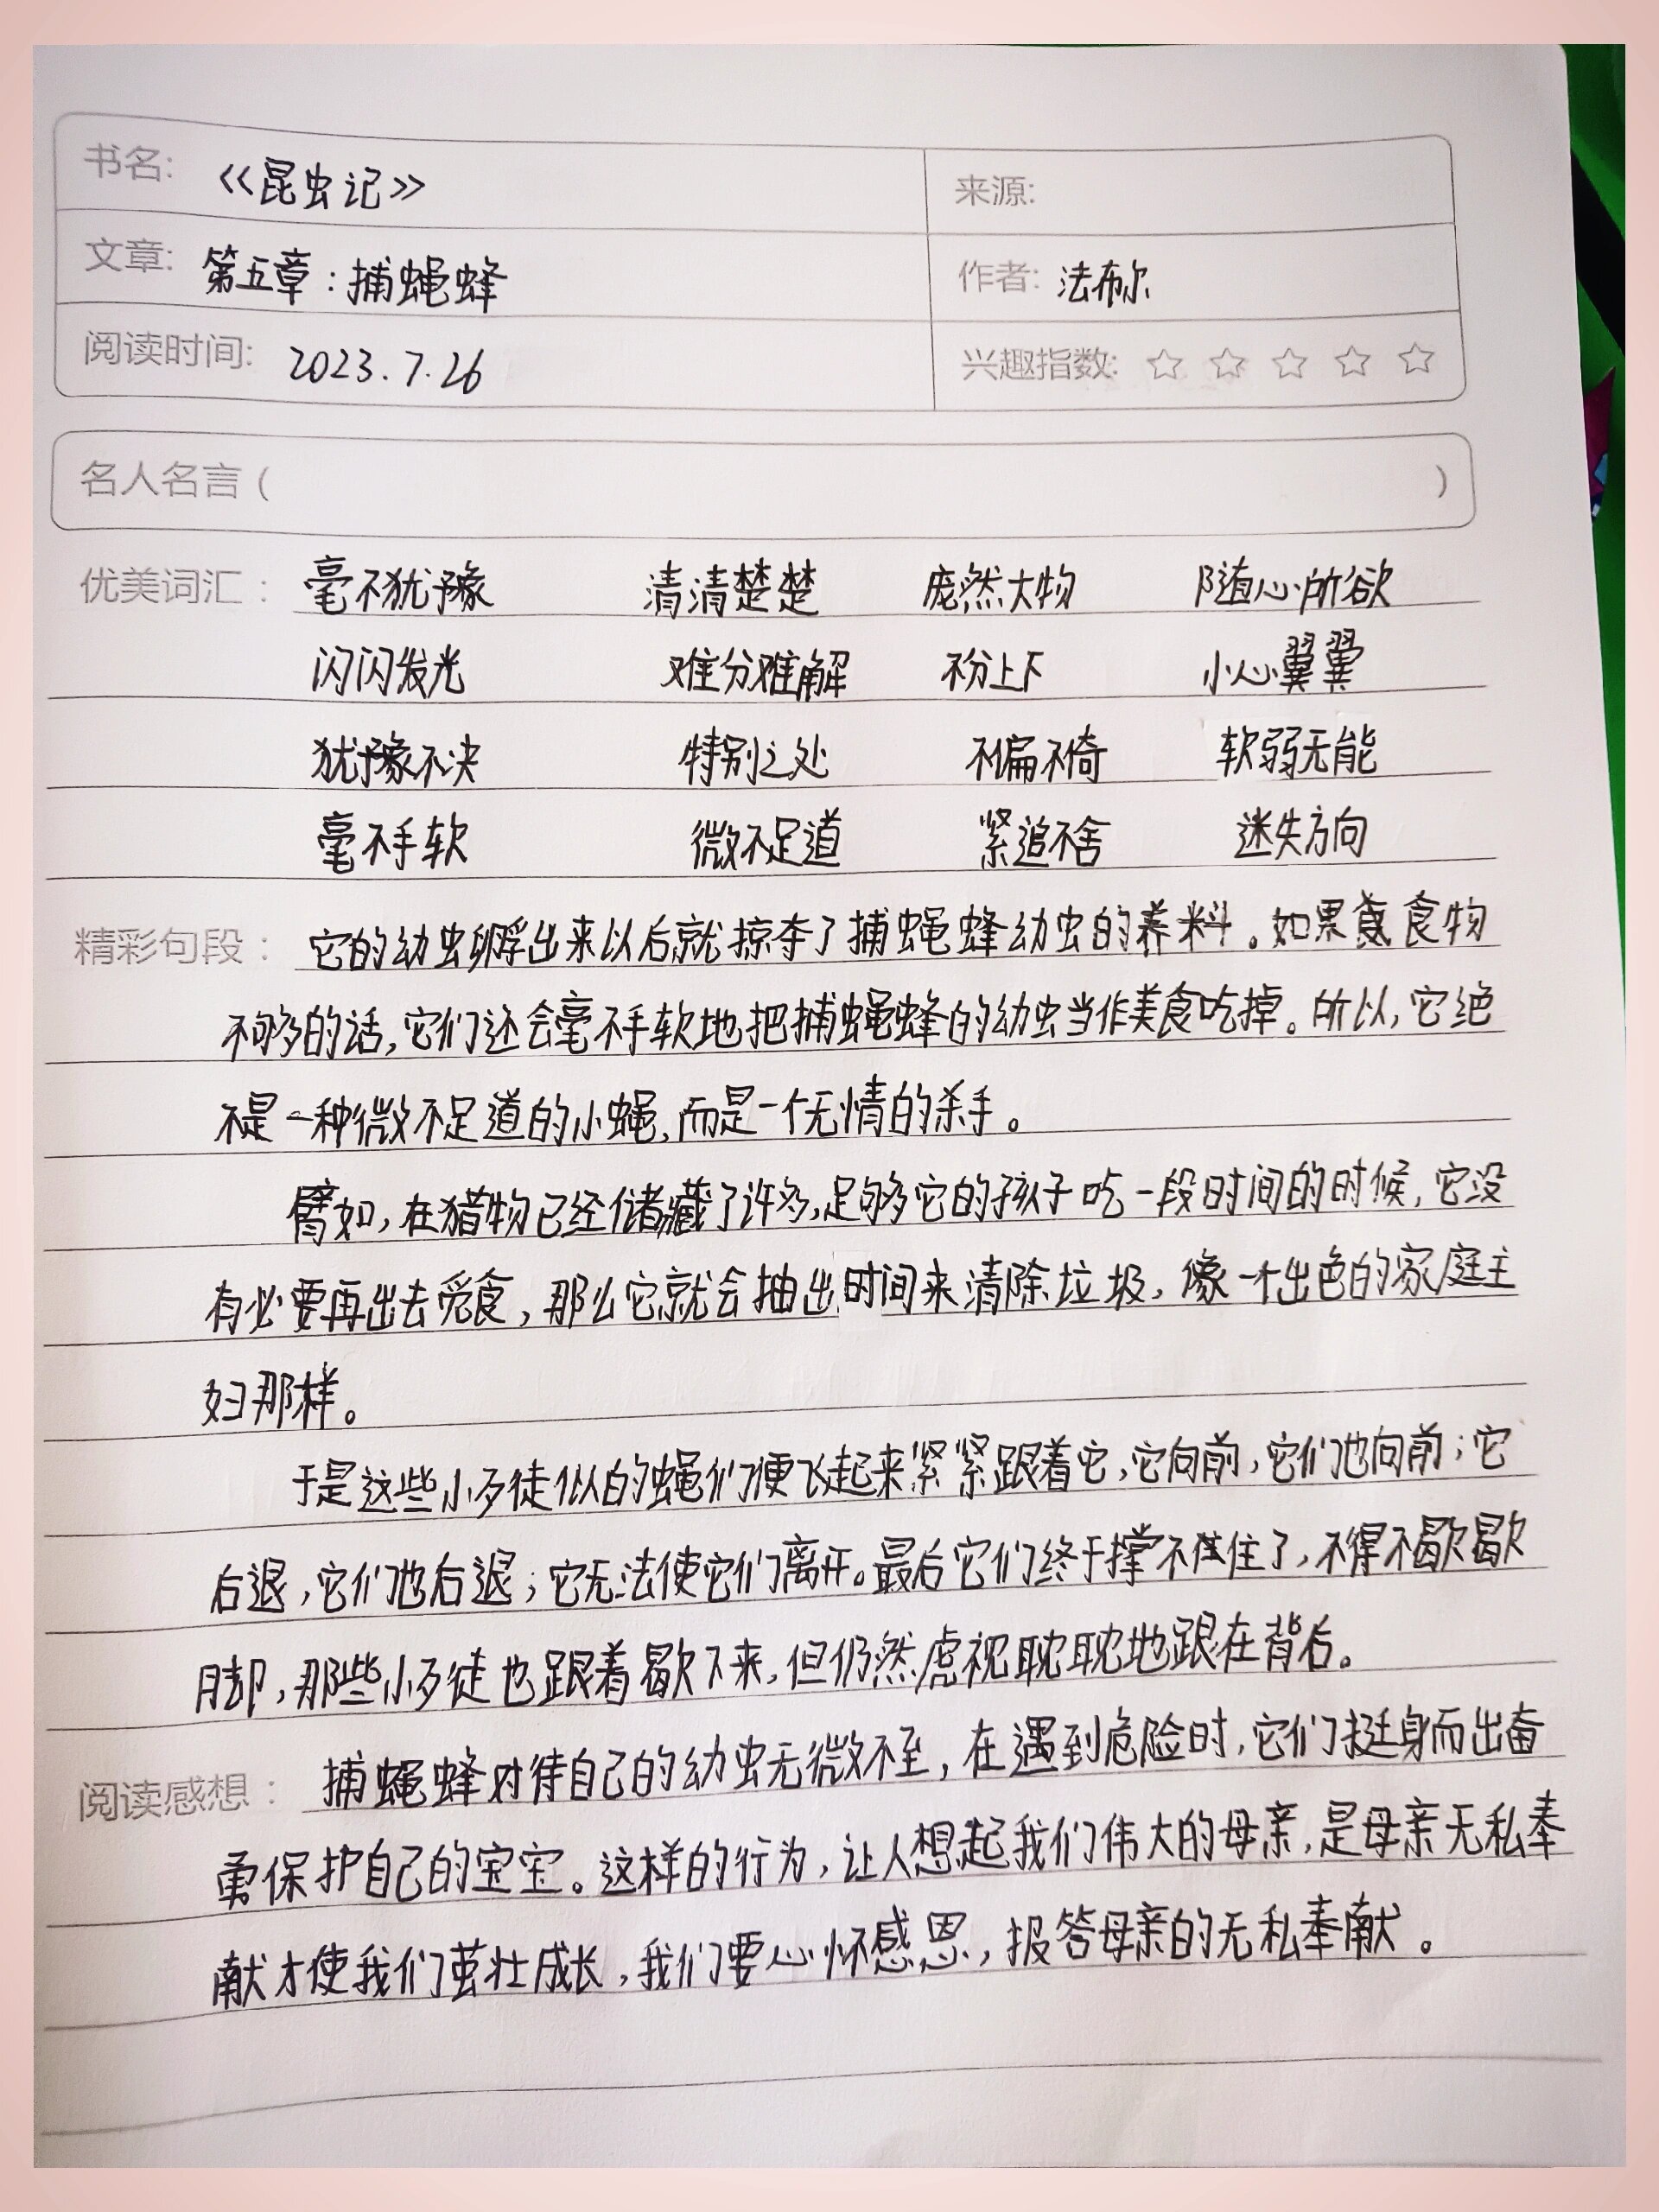 书名: 《昆虫记》 来源:
文章: 第五章:捕蝇蜂 作者: 法布尔
阅读时间: 2023.7.26 兴趣指数: ☆ ☆ ☆ ☆ ☆
名人名言 ( )
优美词汇: 毫不犹豫 清清楚楚 庞然大物 随心所欲
闪闪发光 难分难解 不分上下 小心翼翼
犹豫不决 特别之处 不偏不倚 软弱无能
毫不手软 微不足道 紧追不舍 迷失方向
精彩句段: 它的幼虫孵出来以后就掠夺了捕蝇蜂幼虫的养料。如果食物
不够多的话,它们还会毫不手软地把捕蝇蜂的幼虫当作美食吃掉。所以,它绝
不是一种微不足道的小蝇,而是一个无情的杀手。
臂如,在猎物已经储藏了许多,足够它的孩子吃一段时间的时候,它没
有必要再出去觅食,那么它就会抽出时间来清除垃圾,像一个出色的家庭主
妇那样。
于是这些小歹徒似的蝇们便飞起来紧紧跟着它,它向前,它们也向前;它
后退,它们也后退;它无法使它们离开。最后它们终于撑不住了,不得不歇歇
脚,那些小歹徒也跟着歇下来,但仍然虎视耽耽地跟在背后。
阅读感想: 捕蝇蜂对待自己的幼虫无微不至,在遇到危险时,它们挺身而出奋
勇保护自己的宝宝。这样的行为,让人想起我们伟大的母亲,是母亲无私奉
献才使我们茁壮成长,我们要心怀感恩,报答母亲的无私奉献。